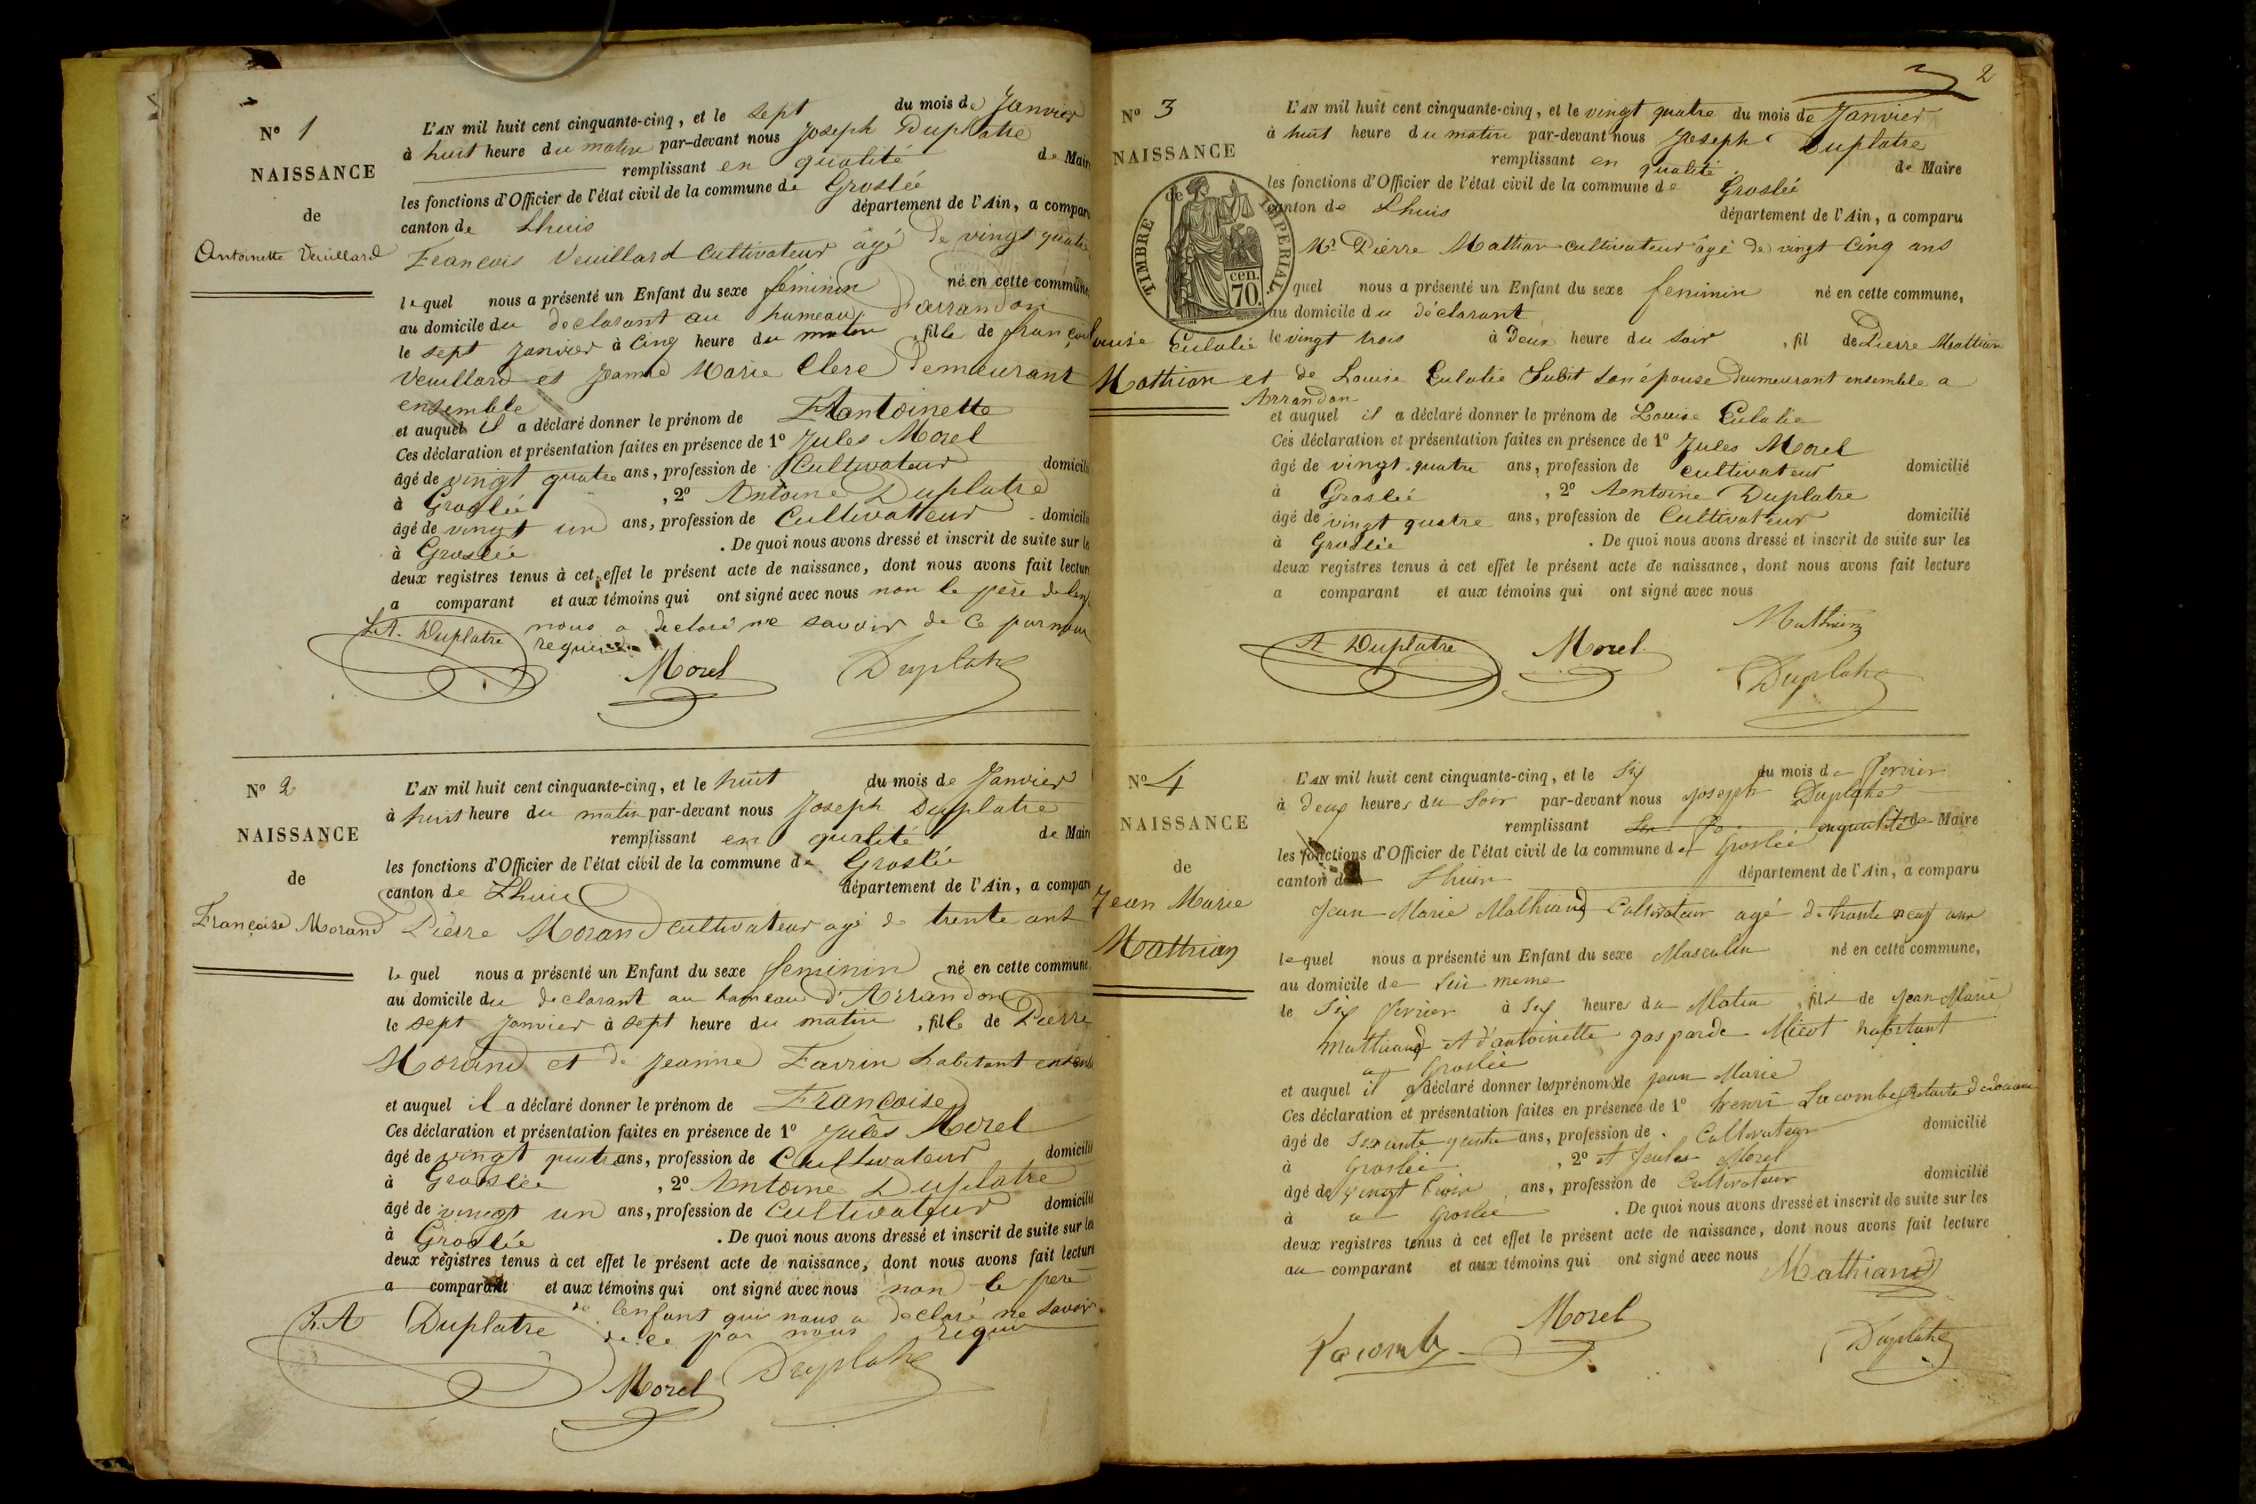 Nº 1
NAISSANCE
de
Antoinette Veuillard
L'AN mil huit cent cinquante-cinq, et le sept du mois de Janvier
à huit heure du matin par-devant nous Joseph Duplatre
remplissant en qualité de Mair
les fonctions d'Officier de l'état civil de la commune de Groslée
canton de Lhuis département de l'Ain, a compar
François Veuillard Cultivateur âgé de vingt quatre
le quel nous a présenté un Enfant du sexe féminin né en cette commune
au domicile du declarant au hameau d'arrandon
le sept Janvier à Cinq heure du matin, fille de françoi
Veuillard et Jeanne Marie Clerc Demeurant
ensemble
et auquel il a déclaré donner le prénom de Antoinette
Ces déclaration et présentation faites en présence de 1º Jules Morel
âgé de vingt quatre ans, profession de Cultivateur domicili
à Groslée, 2º Antoine Duplatre
âgé de vingt un ans, profession de Cultivateur domicili
à Groslée. De quoi nous avons dressé et inscrit de suite sur le
deux registres tenus à cet effet le présent acte de naissance, dont nous avons fait lectur
a comparant et aux témoins qui ont signé avec nous non le père de
nous a declaré ne savoir de Ce par nous
requis
A. Duplatre
Morel Duplatre
Nº 2
NAISSANCE
de
Françoise Morand
L'AN mil huit cent cinquante-cinq, et le huit du mois de Janvier
à huit heure du matin par-devant nous Joseph Duplatre
remplissant en qualité de Mair
les fonctions d'Officier de l'état civil de la commune de Groslée
canton de Lhuis département de l'Ain, a compar
Pierre Morand cultivateur agé de trente ans
le quel nous a présenté un Enfant du sexe feminin né en cette commune
au domicile du declarant au hameau d'Arrandon
le sept Janvier à sept heure du matin, fille de Pierre
Morand et de Jeanne Favrin habitant
et auquel il a déclaré donner le prénom de Françoise
Ces déclaration et présentation faites en présence de 1º Jules Morel
âgé de vingt quatre ans, profession de Cultivateur domicilié
à Groslée, 2º Antoine Duplatre
âgé de vingt un ans, profession de Cultivateur domicilié
à Groslée. De quoi nous avons dressé et inscrit de suite sur les
deux registres tenus à cet effet le présent acte de naissance, dont nous avons fait lecture
a comparant et aux témoins qui ont signé avec nous non le père
de lenfant qui nous a declaré ne savoir
de ce par nous requis
A Duplatre
Morel Duplatre
2
Nº 3
NAISSANCE
de
TIMBRE IMPERIAL.
cen.
70.
Louise Eulalie
Mathian
L'AN mil huit cent cinquante-cinq, et le vingt quatre du mois de Janvier
à huit heure du matin par-devant nous Joseph Duplatre
remplissant en qualité de Maire
les fonctions d'Officier de l'état civil de la commune de Groslée
canton de Lhuis département de l'Ain, a comparu
Mr Pierre Mathian cultivateur âgé de vingt Cinq ans
quel nous a présenté un Enfant du sexe feminin né en cette commune,
au domicile du déclarant
le vingt trois à Deux heure du soir, fil de Pierre Mathian
et de Louise Eulalie Subit son épouse Deumeurant ensemble a
Arrandon
et auquel il a déclaré donner le prénom de Louise Eulalie
Ces déclaration et présentation faites en présence de 1º Jules Morel
âgé de vingt quatre ans, profession de cultivateur domicilié
à Groslée, 2º Antoine Duplatre
âgé de vingt quatre ans, profession de Cultivateur domicilié
à Groslée. De quoi nous avons dressé et inscrit de suite sur les
deux registres tenus à cet effet le présent acte de naissance, dont nous avons fait lecture
a comparant et aux témoins qui ont signé avec nous
Mathian
A Duplatre Morel
Duplatre
Nº 4
NAISSANCE
de
Jean Marie
Mathian
L'AN mil huit cent cinquante-cinq, et le Six du mois de fevrier
à deux heures du Soir par-devant nous Joseph Duplatre
remplissant en qualité de Maire
les fonctions d'Officier de l'état civil de la commune de Groslée
canton de Lhuis département de l'Ain, a comparu
Jean-Marie Mathiand Cultivateur agé de trante neuf ans
lequel nous a présenté un Enfant du sexe Masculin né en cette commune,
au domicile de lui meme
le Six fevrier à Six heures du Matin, fils de Jean Marie
Mathiand et d'antoinette gasparde Micot habitant
a Groslée
et auquel il a déclaré donner les prénoms de Jean Marie
Ces déclaration et présentation faites en présence de 1º henri Lacombe
âgé de Soixante quatre ans, profession de Cultivateur domicilié
à Groslée, 2º et Jeules Morel
âgé de vingt ans, profession de Cultivateur domicilié
à a Groslée. De quoi nous avons dressé et inscrit de suite sur les
deux registres tenus à cet effet le présent acte de naissance, dont nous avons fait lecture
au comparant et aux témoins qui ont signé avec nous Mathiand
Lacombe Morel Duplatre